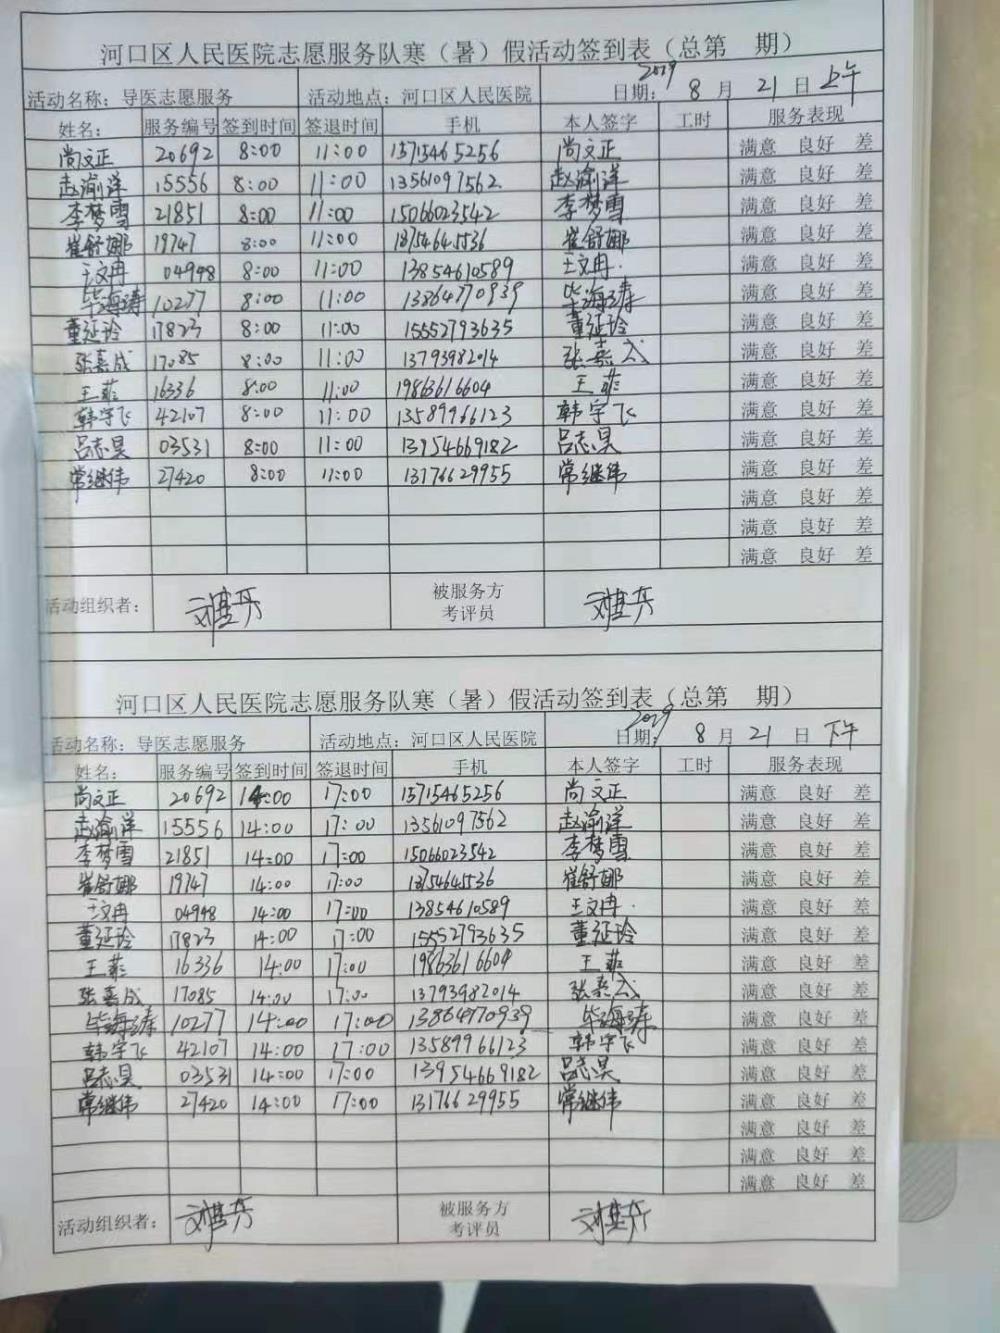 河口区人民医院志愿服务队寒（暑）假活动签到表（总第 期）
活动名称：导医志愿服务 活动地点：河口区人民医院 日期：2019 8 月 21 日 上午
姓名： 服务编号 签到时间 签退时间 手机 本人签字 工时 服务表现
尚文正 20692 8:00 11:00 15715465256 尚文正 满意 良好 差
赵渝洋 15556 8:00 11:00 13561097562 赵渝洋 满意 良好 差
李梦雪 21851 8:00 11:00 15066023542 李梦雪 满意 良好 差
崔舒娜 19747 8:00 11:00 18754645536 崔舒娜 满意 良好 差
王文冉 04948 8:00 11:00 13854610589 王文冉 满意 良好 差
毕海涛 10277 8:00 11:00 13864770939 毕海涛 满意 良好 差
董延玲 17823 8:00 11:00 15552793635 董延玲 满意 良好 差
张嘉成 17085 8:00 11:00 13793982014 张嘉成 满意 良好 差
王菲 16336 8:00 11:00 19863616604 王菲 满意 良好 差
韩宇飞 42107 8:00 11:00 13589966123 韩宇飞 满意 良好 差
吕志昊 03531 8:00 11:00 13954669182 吕志昊 满意 良好 差
常继伟 27420 8:00 11:00 13176629955 常继伟 满意 良好 差
满意 良好 差
满意 良好 差
满意 良好 差
活动组织者： 被服务方
考评员
河口区人民医院志愿服务队寒（暑）假活动签到表（总第 期）
活动名称：导医志愿服务 活动地点：河口区人民医院 日期：2019 8 月 21 日 下午
姓名： 服务编号 签到时间 签退时间 手机 本人签字 工时 服务表现
尚文正 20692 14:00 17:00 15715465256 尚文正 满意 良好 差
赵渝洋 15556 14:00 17:00 13561097562 赵渝洋 满意 良好 差
李梦雪 21851 14:00 17:00 15066023542 李梦雪 满意 良好 差
崔舒娜 19747 14:00 17:00 18754645536 崔舒娜 满意 良好 差
王文冉 04948 14:00 17:00 13854610589 王文冉 满意 良好 差
董延玲 17823 14:00 17:00 15552793635 董延玲 满意 良好 差
王菲 16336 14:00 17:00 19863616604 王菲 满意 良好 差
张嘉成 17085 14:00 17:00 13793982014 张嘉成 满意 良好 差
毕海涛 10277 14:00 17:00 13864770939 毕海涛 满意 良好 差
韩宇飞 42107 14:00 17:00 13589966123 韩宇飞 满意 良好 差
吕志昊 03531 14:00 17:00 13954669182 吕志昊 满意 良好 差
常继伟 27420 14:00 17:00 13176629955 常继伟 满意 良好 差
满意 良好 差
满意 良好 差
满意 良好 差
活动组织者： 被服务方
考评员